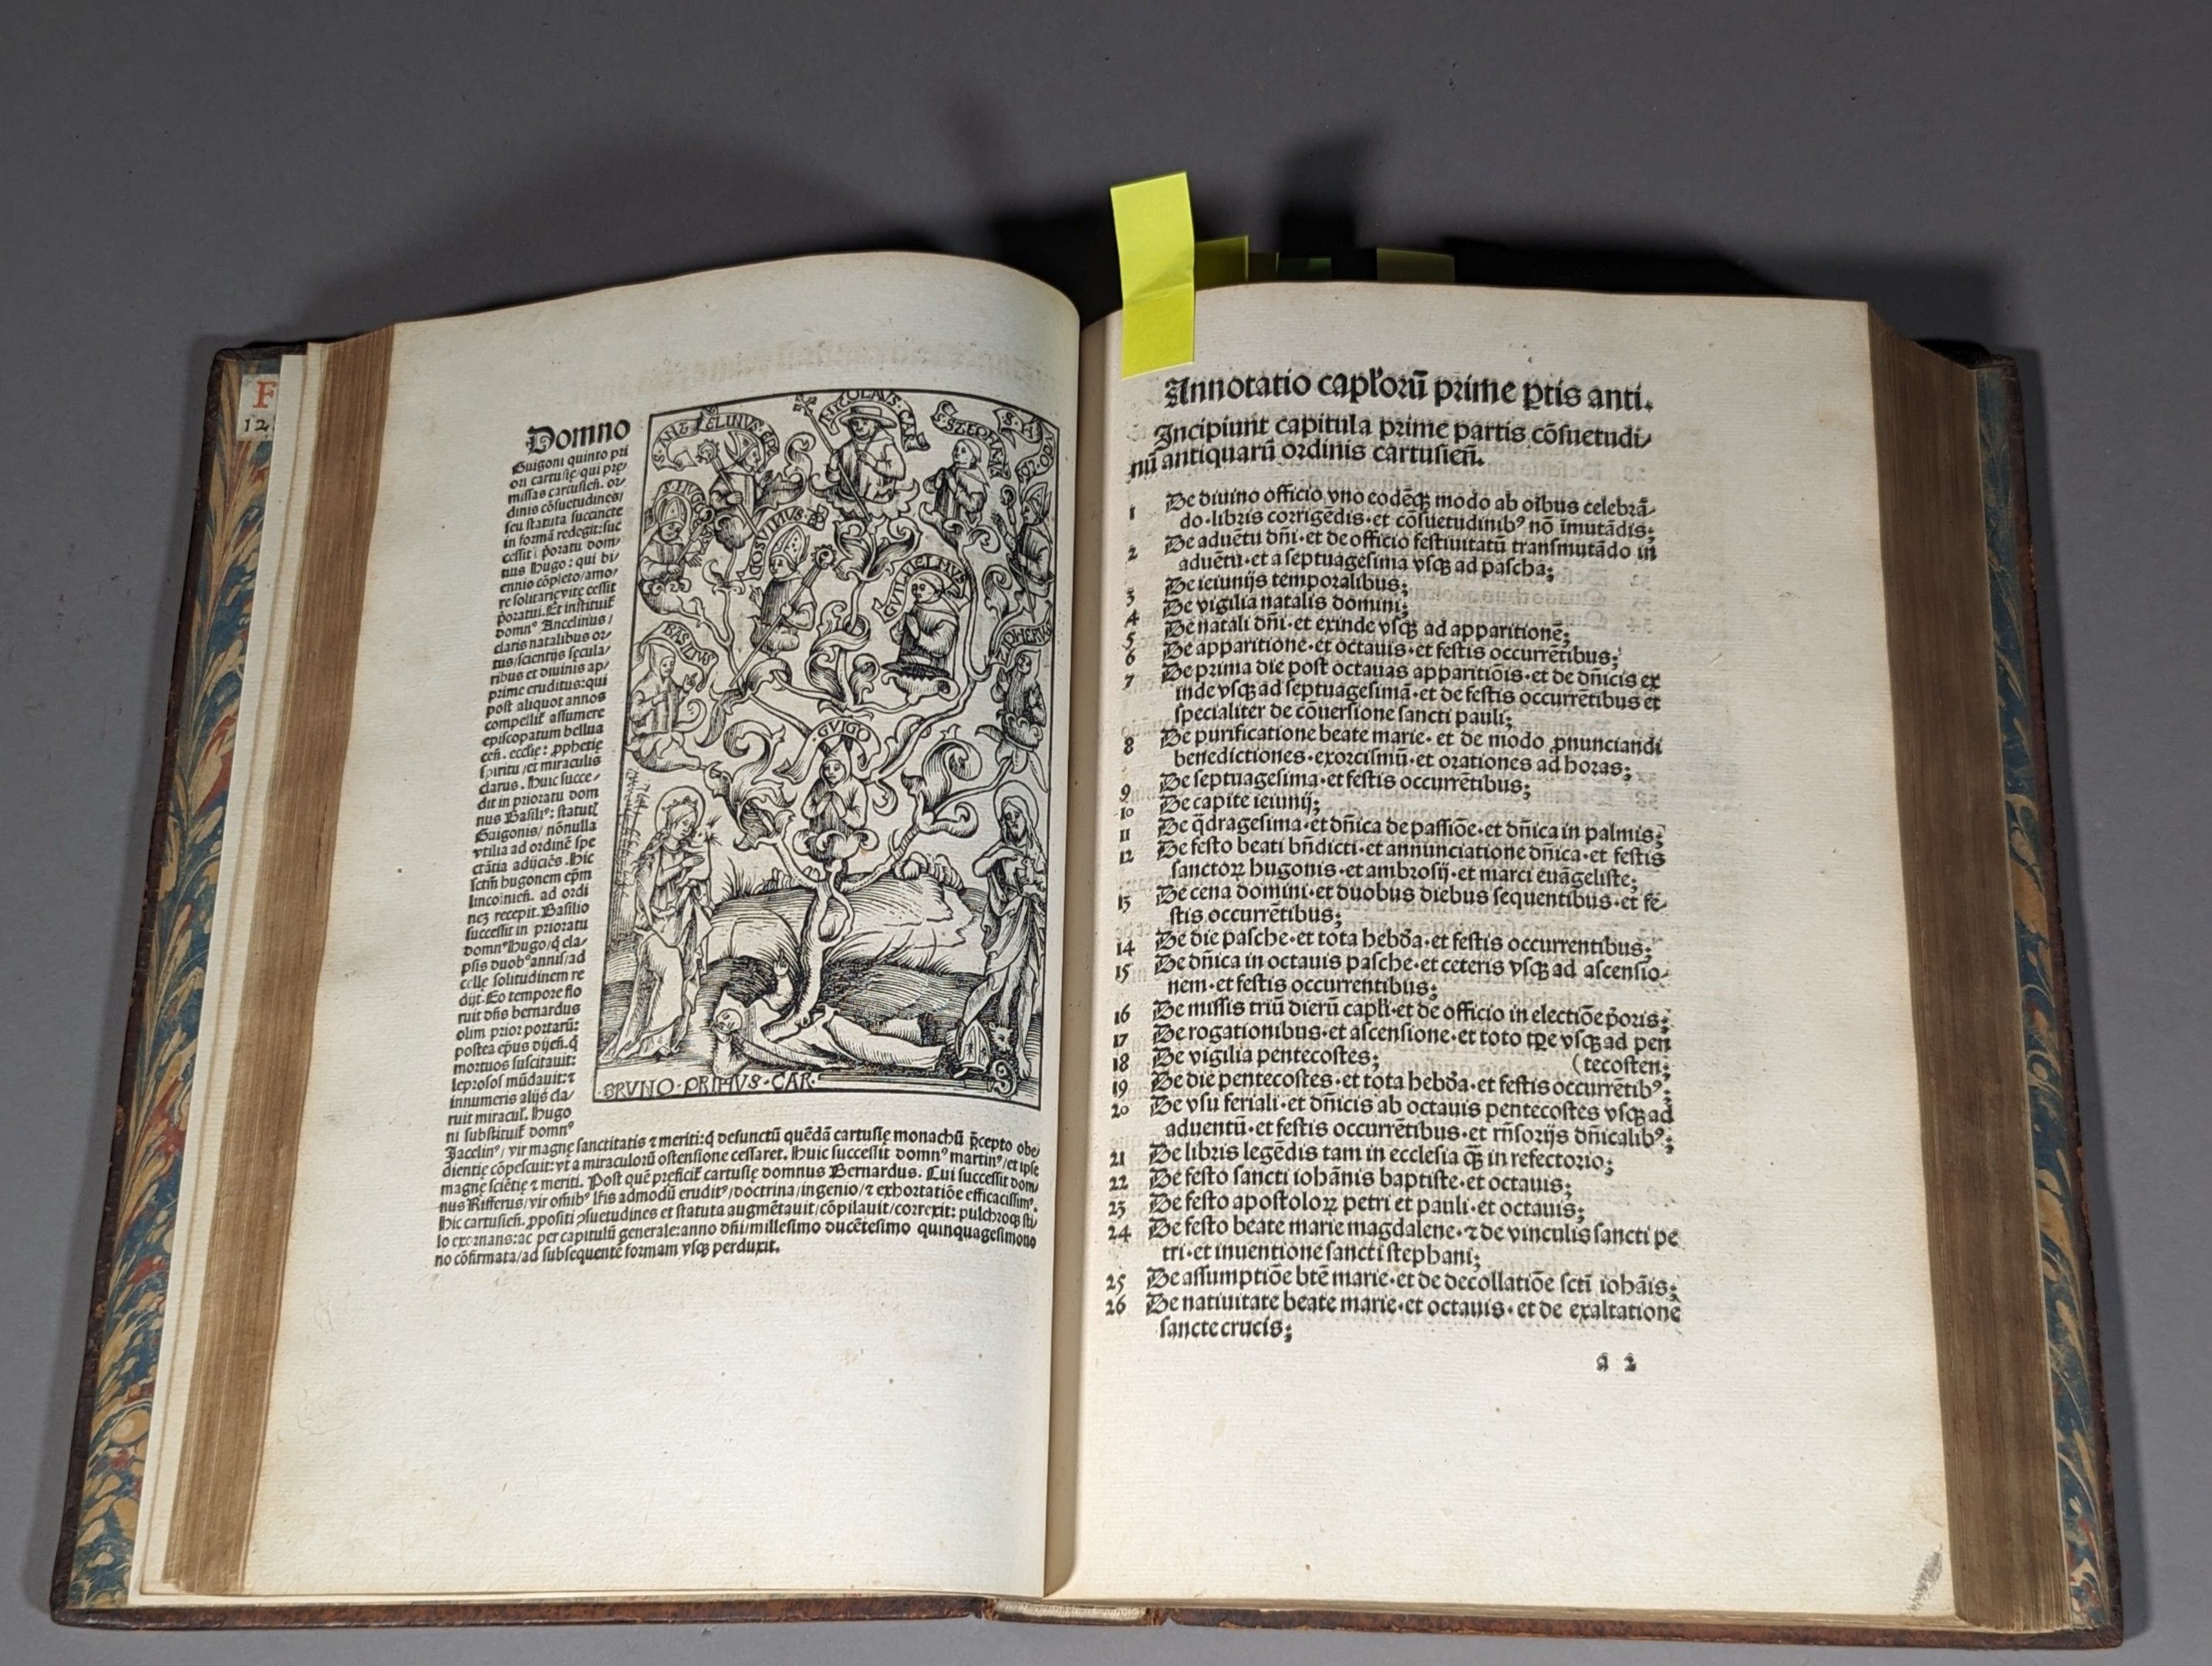 F
12
Domno
Guigoni quinto pri
ori cartusię/qui pre/
missas cartusień. or/
dinis cōsuetudines/
seu statuta succincte
in formā redegit: suc
cessit ī p̄oratu dom/
nus Hugo: qui bi/
ennio cōpleto/amo/
re solitarię vitę cessit
p̄oratui. Et instituit
domnꝰ Ancelinus/
claris natalibus or/
tus/scientijs sęcula/
ribus et diuinis ap/
prime eruditus: qui
post aliquot annos
compellit assumere
episcopatum bellua
ceń. ecclię: ꝓphetię
spiritu/et miraculis
clarus. Huic succe/
dit in prioratu dom
nus Basiliꝰ: statutꝭ
Guigonis/nōnulla
vtilia ad ordinē spe
ctātia adijciēs. Hic
sctm̄ hugonem ep̄m
lincolnień. ad ordi
neȝ recepit. Basilio
successit in prioratu
domnꝰ Hugo/q̇ ela/
psis duobꝰ annis/ad
cellę solitudinem re
dijt. Eo tempore flo
ruit dn̄s bernardus
olim prior portarū:
postea ep̄us dijeń. q̇
mortuos suscitauit:
leprosos mūdauit: ⁊
innumeris alijs cla/
ruit miracuł. Hugo
ni substituit domnꝰ
Jacelinꝰ/vir magnę sanctitatis ⁊ meriti: q̇ defunctū quēdā cartusię monachū p̄cepto obe/
dientię cōpescuit: vt a miraculorū ostensione cessaret. Huic successit domnꝰ martinꝰ/et ipse
magnę sciētię ⁊ meriti. Post quē p̄ficit cartusię domnus Bernardus. Cui successit dom/
nus Rifferus/vir oībꝰ lr̄is admodū eruditꝰ/doctrina/ingenio/⁊ exhortatiōe efficacissimꝰ.
Hic cartusień. ꝓpositi ꝯsuetudines et statuta augmētauit/cōpilauit/correxit: pulchroqꝫ sti/
lo exornans: ac per capitulū generale: anno dn̄i/millesimo ducētesimo quinquagesimono
no cōfirmata/ad subsequentē formam vsqꝫ perduxit.
NICOLAVS·CAR
BASILIVS
GVILHELMVS
·GVIGO·
·BRVNO·PRIMVS·CAR·
Annotatio capłorū prime ꝑtis anti.
Incipiunt capitula prime partis cōsuetudi/
nū antiquarū ordinis cartusień.
1 De diuino officio vno eodēqꝫ modo ab oībus celebrā/
do·libris corrigēdis·et cōsuetudinibꝰ nō īmutādis;
2 De aduētu dn̄i·et de officio festiuitatū transmutādo in
aduētu·et a septuagesima vsqꝫ ad pascha;
3 De ieiunijs temporalibus;
4 De vigilia natalis domini;
5 De natali dn̄i·et exinde vsqꝫ ad apparitionē;
6 De apparitione·et octauis·et festis occurrētibus;
7 De prima die post octauas apparitiōis·et de dn̄icis ex
inde vsqꝫ ad septuagesimā·et de festis occurrētibus et
specialiter de cōuersione sancti pauli;
8 De purificatione beate marie·et de modo ꝓnunciandi
benedictiones·exorcismū·et orationes ad horas;
9 De septuagesima·et festis occurrētibus;
10 De capite ieiunij;
11 De q̄dragesima·et dn̄ica de passiōe·et dn̄ica in palmis;
12 De festo beati bn̄dicti·et annunciatione dn̄ica·et festis
sanctoꝝ hugonis·et ambrosij·et marci euāgeliste;
13 De cena domini·et duobus diebus sequentibus·et fe/
stis occurrētibus;
14 De die pasche·et tota hebđa·et festis occurrentibus;
15 De dn̄ica in octauis pasche·et ceteris vsqꝫ ad ascensio/
nem·et festis occurrentibus;
16 De missis triū dierū capłi·et de officio in electiōe p̄oris;
17 De rogationibus·et ascensione·et toto tꝑe vsqꝫ ad pen
18 De vigilia pentecostes; (tecosten;
19 De die pentecostes·et tota hebđa·et festis occurrētibꝰ;
20 De vsu feriali·et dn̄icis ab octauis pentecostes vsqꝫ ad
aduentū·et festis occurrētibus·et rn̄sorijs dn̄icalibꝰ;
21 De libris legēdis tam in ecclesia qꝫ̄ in refectorio;
22 De festo sancti iohānis baptiste·et octauis;
23 De festo apostoloꝝ petri et pauli·et octauis;
24 De festo beate marie magdalene·⁊ de vinculis sancti pe
tri·et inuentione sancti stephani;
25 De assumptiōe btē marie·et de decollatiōe sctī iohāis;
26 De natiuitate beate marie·et octauis·et de exaltatione
sancte crucis;
a 2